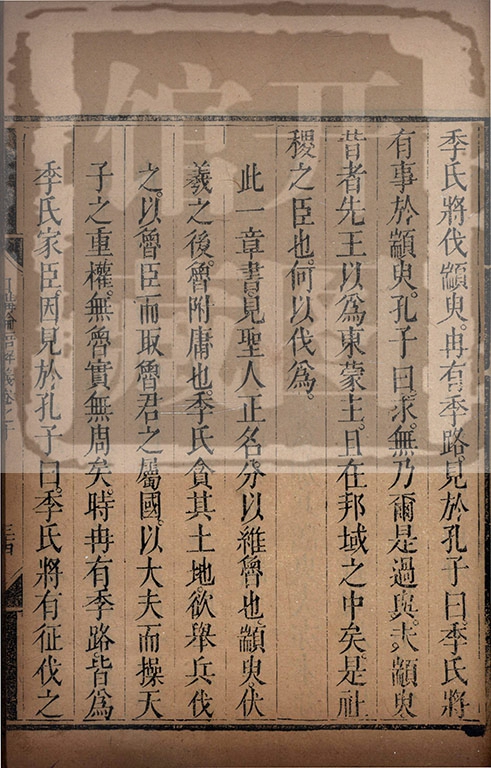 季氏將伐顓臾。冉有季路。見於孔子曰。季氏將
有事於顓臾。孔子曰。求。無乃爾是過與。夫顓臾
昔者先王以爲東蒙主。且在邦域之中矣。是社
稷之臣也。何以伐爲。
此一章書。見聖人正名分以維魯也。顓臾。伏
羲之後。魯附庸也。季氏貪其土地。欲舉兵伐
之。以魯臣而取魯君之屬國。以大夫而操天
子之重權。無魯實無周矣。時冉有季路。皆爲
季氏家臣。因見於孔子曰。季氏將有征伐之